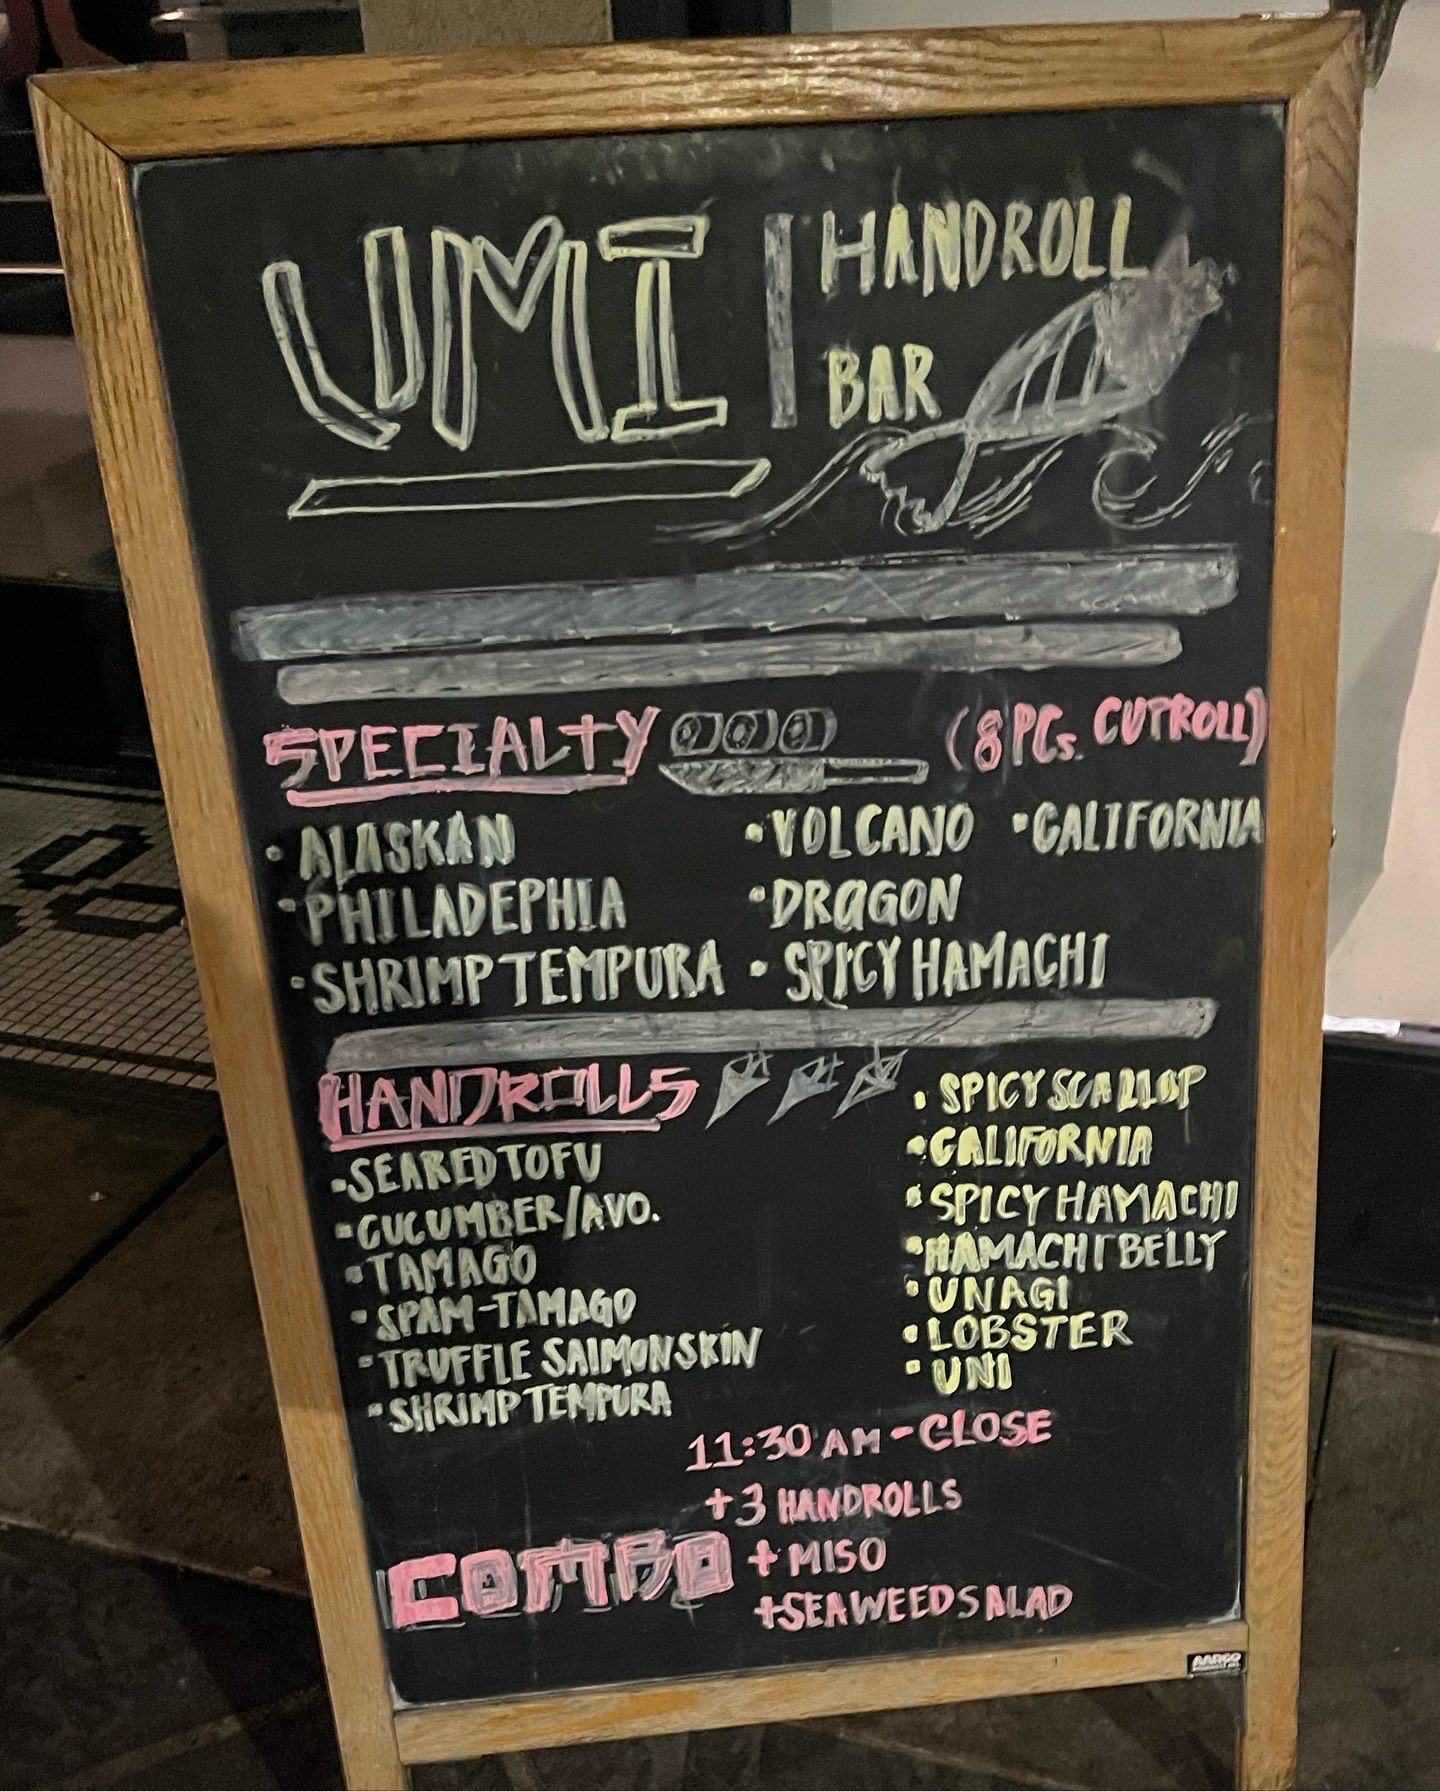 UMI
HANDROLL
BAR
SPECIALTY (8 PCs. CUTROLL)
• ALASKAN
• PHILADEPHIA
• SHRIMP TEMPURA
• VOLCANO
• DRaGON
• SPICY HAMACHI
• CALIFORNIA
HANDROLLS
• SEARED TOFU
• CUCUMBER/AVO.
• TAMAGO
• SPAM-TAMAGO
• TRUFFLE SALMON SKIN
• SHRIMP TEMPURA
• SPICY SCALLOP
• CALIFORNIA
• SPICY HAMACHI
• HAMACHI BELLY
• UNAGI
• LOBSTER
• UNI
11:30 AM - CLOSE
COMBO
+ 3 HANDROLLS
+ MISO
+ SEAWEED SALAD
AARCO